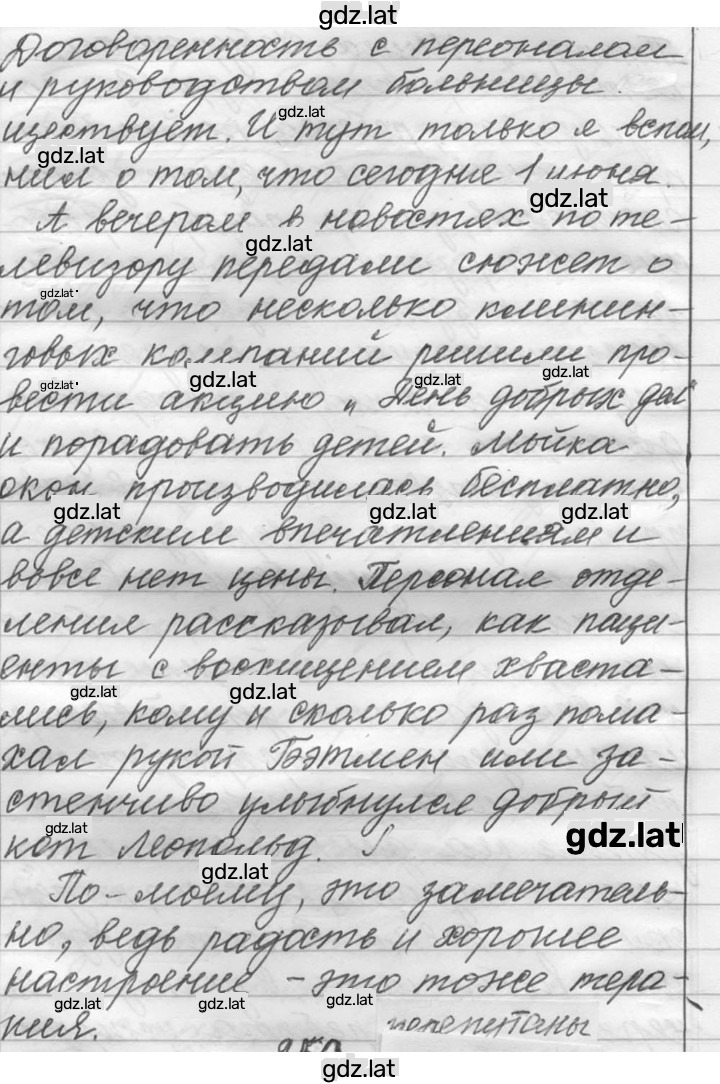 gdz.lat
Договоренность с персоналом
и руководством больницы
gdz.lat
ществует. И тут только я вспом,
gdz.lat
нил о том, что сегодня 1 июня.
gdz.lat
А вечером в новостях по те-
gdz.lat
левизору передали сюжет о
gdz.lat
том, что несколько клинин-
говых компаний решили про-
gdz.lat gdz.lat gdz.lat gdz.lat
вести акцию „День добрых дел“
и порадовать детей. Мойка
окон производилась бесплатно,
gdz.lat gdz.lat gdz.lat
а детским впечатлениям и
вовсе нет цены. Персонал отде-
ления рассказывал, как паци-
енты с восхищением хваста-
gdz.lat gdz.lat
лись, кому и сколько раз пома-
хал рукой Бэтмен или за-
стенчиво улыбнулся добрый
gdz.lat gdz.lat
кот Леопольд.
gdz.lat
По-моему, это замечатель-
но, ведь радость и хорошее
настроение – это тоже тера-
gdz.lat gdz.lat gdz.lat
пия.
gdz.lat